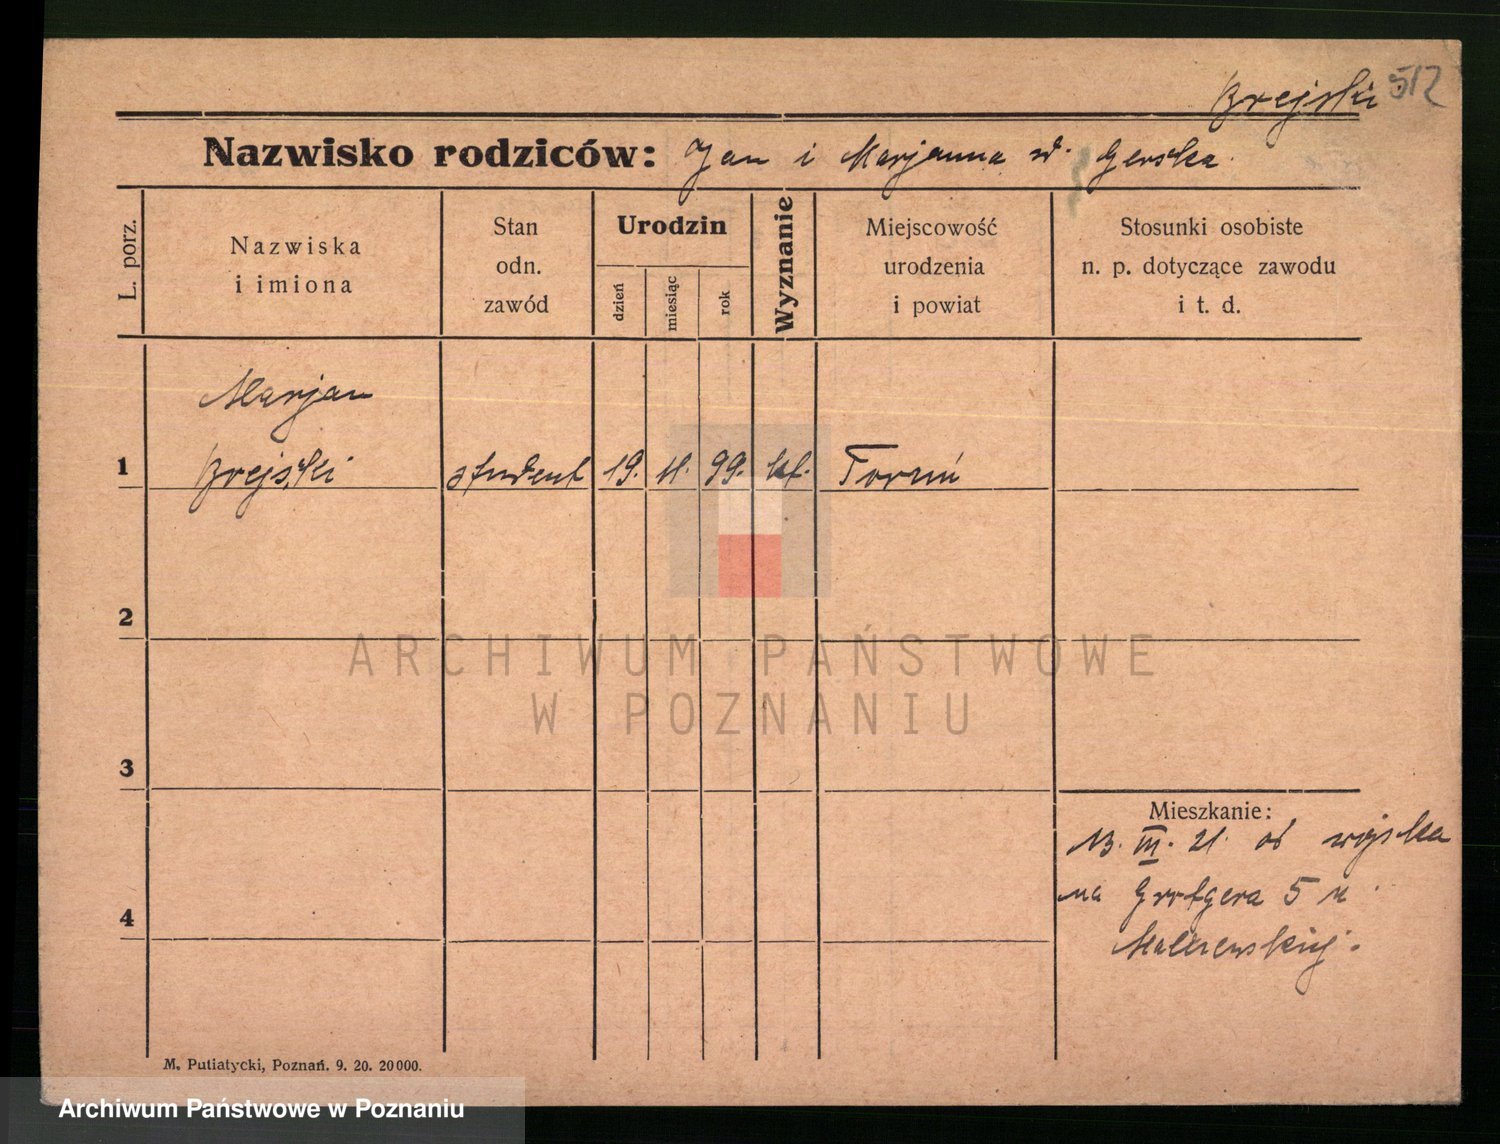 Brejski 512
Nazwisko rodziców: Jan i Marjanna ud. Gerska.
L. porz.
Nazwiska
i imiona
Stan
odn.
zawód
Urodzin
dzień
miesiąc
rok
Wyznanie
Miejscowość
urodzenia
i powiat
Stosunki osobiste
n. p. dotyczące zawodu
i t. d.
Marjan
1 Brejski student 19. 11. 99. kat. Toruń
2
ARCHIWUM PAŃSTWOWE
W POZNANIU
3
Mieszkanie:
13. III. 21. od wojska
na Grotgera 5 u
4
Malczewskiej.
M. Putiatycki, Poznań. 9. 20. 20000.
Archiwum Państwowe w Poznaniu